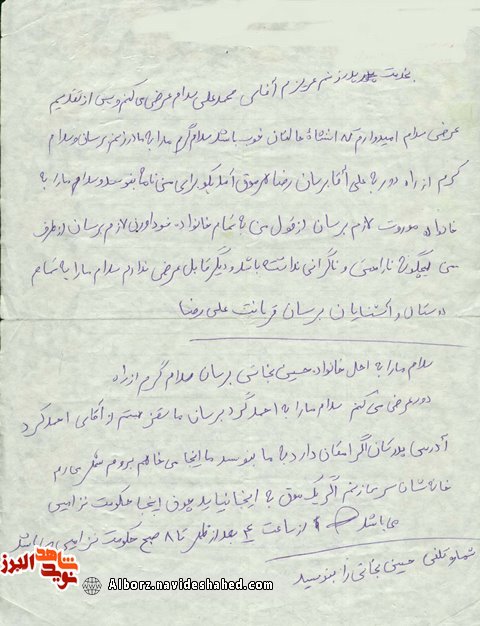 بخدمت پدر زنم عزیزم آقای محمد علی سلام عرض می کنم و پس از تقدیم
عرض سلام امیدوارم که انشاالله حالتان خوب باشد سلام گرم مارا به مادر زنم برسان و سلام
گرم از راه دور به علی آقا برسان رضا هر موقع آمد بگو برای من نامه بنویسد و سلام مارا به
خانواده برسان از قول من به تمام خانواده خود اورنی لازم برسان از طرف
من هیچگونه ناراحتی و نگرانی نداشته باشد و دیگر قابل عرض ندارم سلام مارا به تمام
دوستان و آشنایان برسان قربانت علی رضا
سلام مارا به اهل خانواده حسین نجاتی برسان سلام گرم از راه
دور عرض می کنم سلام مارا به احمد گرد برسان ما سقز هستم و آقای احمد گرد
آدرس پدرتان اگر امکان دارد به ما بنویسد ما اینجا می خواهم بروم
خانه شان سر بزنم اگر یک موقع به اینجا نیاید چون اینجا حکومت نظامی
می باشد از ساعت ۴ بعد از ظهر تا ۸ صبح حکومت نظامی می باشد
شماره تلفن حسین نجاتی را بنویسید
شاهد
نوید
البرز
Alborz.navideshahed.com